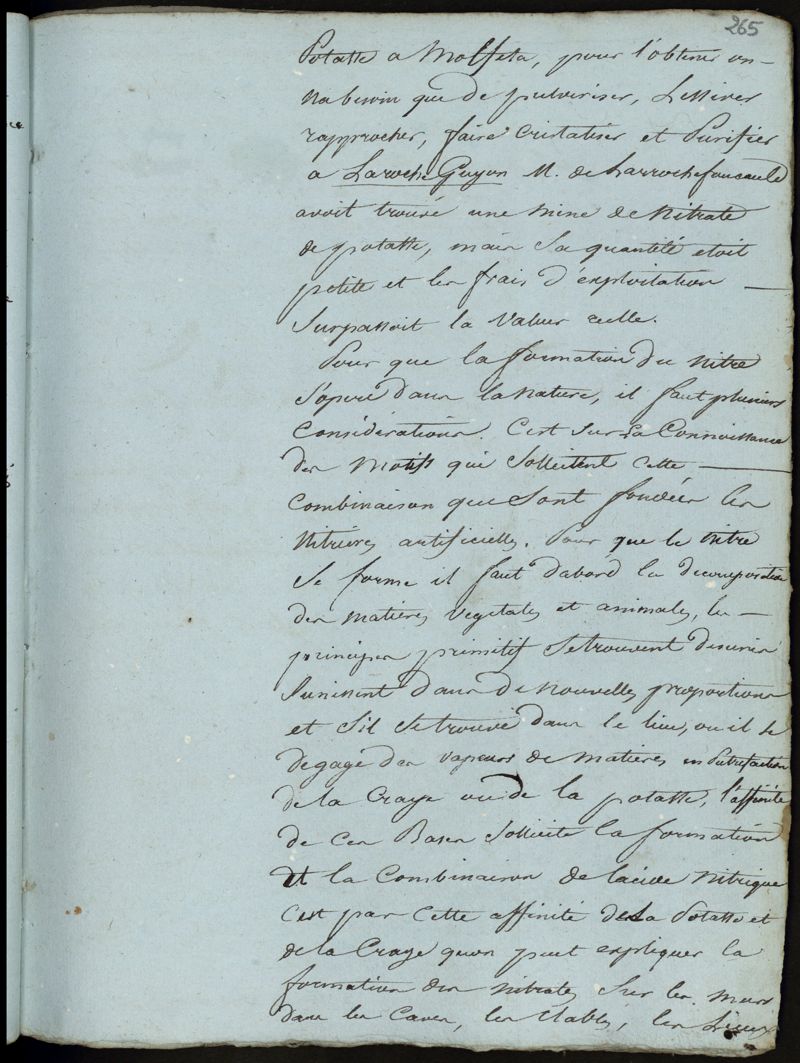 265
Potasse a Molfeta, pour l'obtenir on
na besoin que de pulveriser, Lessiver
rapprocher, faire Cristaliser et Purifier
a Laroche Guyon M. de Larrochefoucauld
avoit trouvé une mine de Nitrate
de potasse, mais Sa quantité etoit
petite et les frais d'exploitation
Surpassoit la Valeur reelle.
Pour que la formation du Nitre
S'opere dans la Nature, il faut plusieurs
Considérations. C'est Sur La Connoissance
des Motifs qui Sollicitent cette
Combinaison que Sont fondées les
Nitrieres artificielles. Pour que le nitre
Se forme il faut dabord la decomposition
des matieres vegetales et animales, les
principes primitifs Se trouvent desunis
Sunissent dans de Nouvelles proportions
et Sil Se trouve dans le lieu, ou il Se
degage des vapeurs de Matieres en Putrefaction
de la Craye ou de la potasse, l'affinité
de Ces Bases Sollicite la formation
et la Combinaison de lacide Nitrique
C'est par Cette affinité de La Potasse et
de la Craye quon peut expliquer la
formation des Nitrates Sur les murs
dans les Caves, les Etables, les Lieux